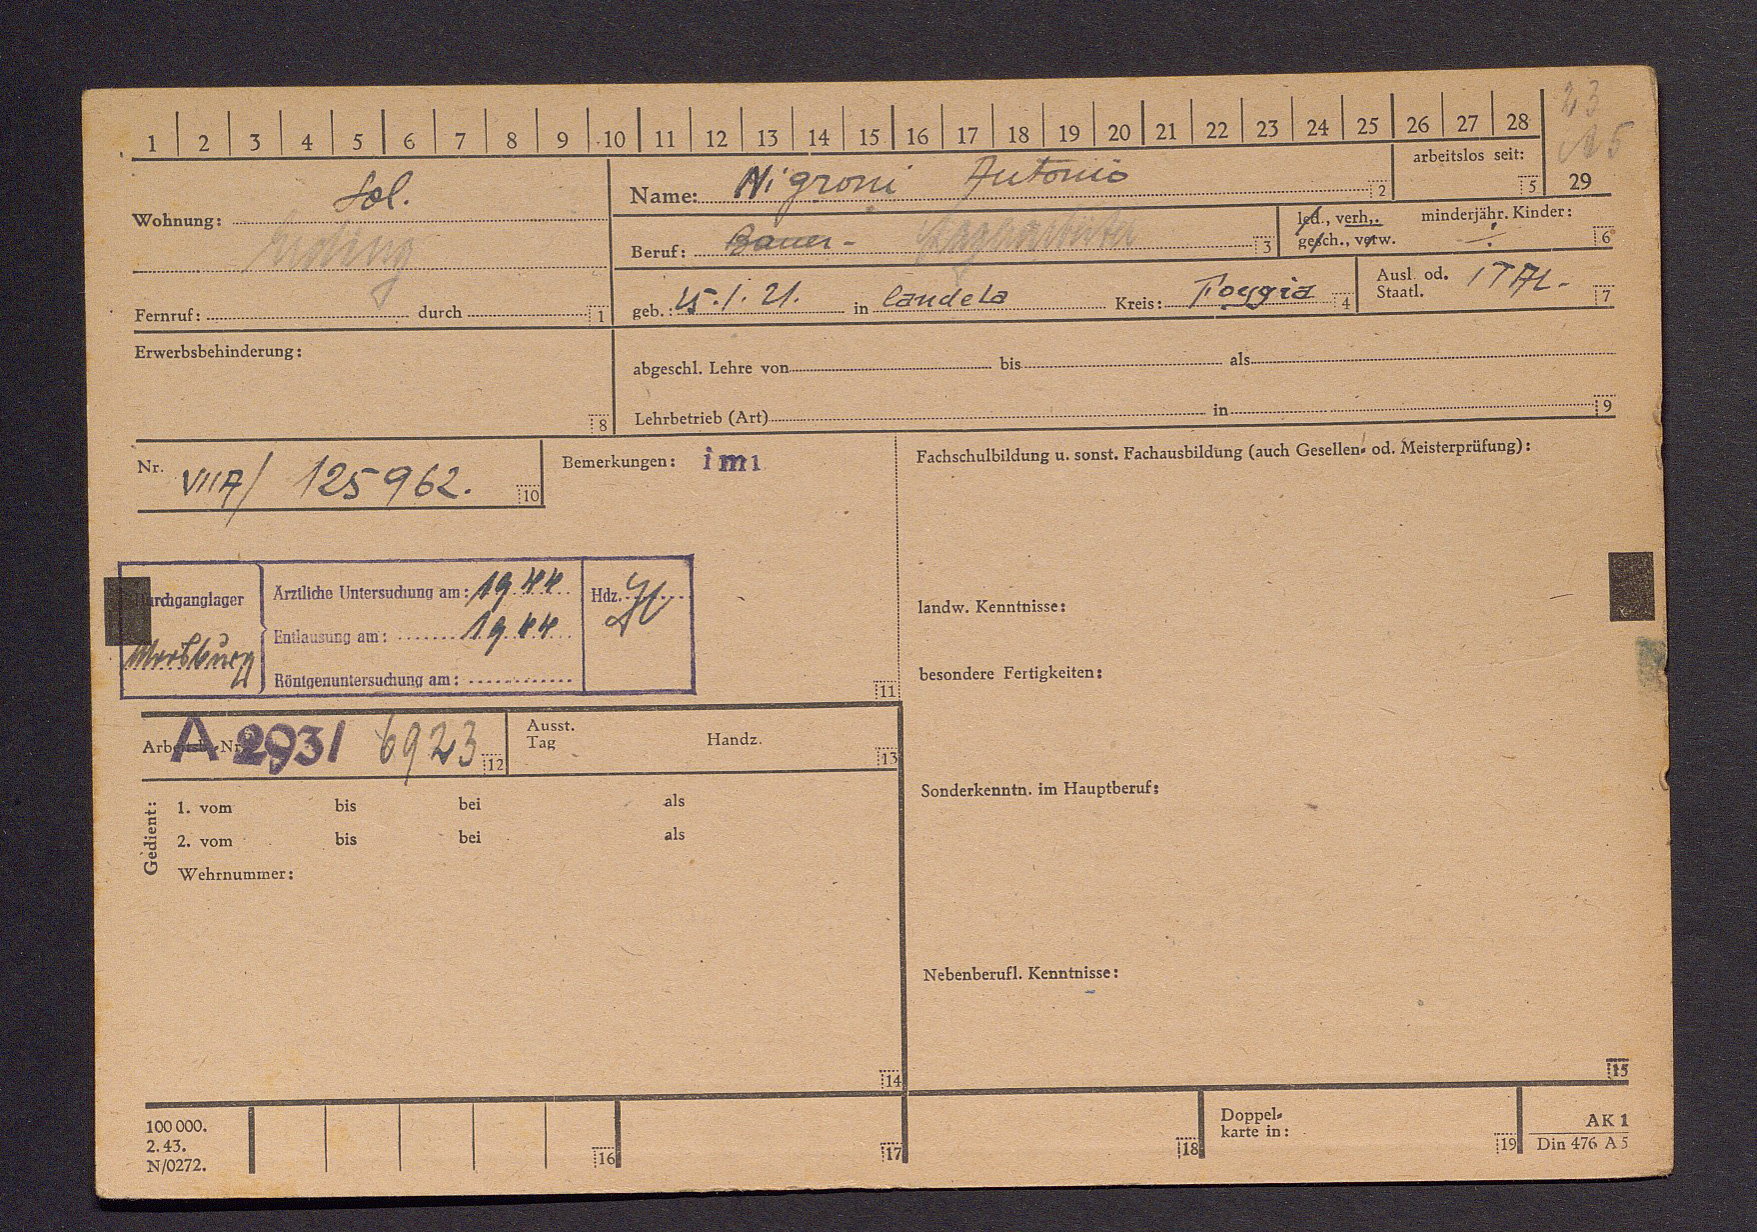 1 2 3 4 5 6 7 8 9 10 11 12 13 14 15 16 17 18 19 20 21 22 23 24 25 26 27 28
23
arbeitslos seit: 5 29
Sol.
Name: Nigroni Antonio 2
Wohnung:
Erding
Beruf: Bauer - 3
led., verh., minderjähr. Kinder:
gesch., verw. ÷ 6
Fernruf: durch 1
geb.: 25.1.21. in Candela Kreis: Foggia 4
Ausl. od. ITAL.
Staatl. 7
Erwerbsbehinderung: 8
abgeschl. Lehre von bis als
Lehrbetrieb (Art) in 9
Nr. VIIA/ 125962. 10
Bemerkungen: imi
Fachschulbildung u. sonst. Fachausbildung (auch Gesellen- od. Meisterprüfung):
Durchganglager
Moosburg
Ärztliche Untersuchung am: 1944
Entlausung am: 1944
Röntgenuntersuchung am:
Hdz.
11
landw. Kenntnisse:
besondere Fertigkeiten:
Arbeitsb.-Nr. A 293/ 6923 12
Ausst.
Tag
Handz. 13
Sonderkenntn. im Hauptberuf:
Gedient:
1. vom bis bei als
2. vom bis bei als
Wehrnummer:
14
Nebenberufl. Kenntnisse:
15
100 000.
2. 43.
N/0272.
16
17
18
Doppel-
karte in: 19
AK 1
Din 476 A 5